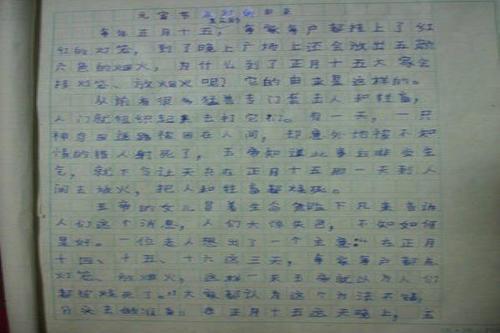 元宵节点灯的由来
每年正月十五，各家各户都挂上了红
红的灯笼，到了晚上广场上还会放出五颜
六色的烟火，为什么到了正月十五大家会
挂灯笼、放烟火呢？它的由来是这样的。
从前有很多猛兽专门害主人和牲畜，
人们就组织起来去打它们。有一天，一只
神鸟因迷路被困在人间，却意外地被不知
情的猎人射死了，玉帝知道此事后非常生
气，就下令让天兵在正月十五那一天到人
间去放火，把人和牲畜都烧死。
玉帝的女儿冒着生命危险下凡来告诉
人们这个消息，人们大惊失色，不知如何
是好。一位老人想出了一个主意：“在正月
十四、十五、十六这三天，每家每户都点
灯笼、放烟火，这样一来玉帝就以为人们
都给烧死了。”大家都认为这个方法不错，
分头去做准备。在正月十五这天晚上，玉